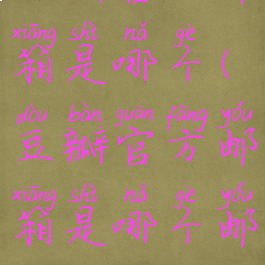 xiāng shì nǎ gè
箱是哪个(
dòu bàn guān fāng yóu
豆瓣官方邮
xiāng shì nǎ gè yóu
箱是哪个邮